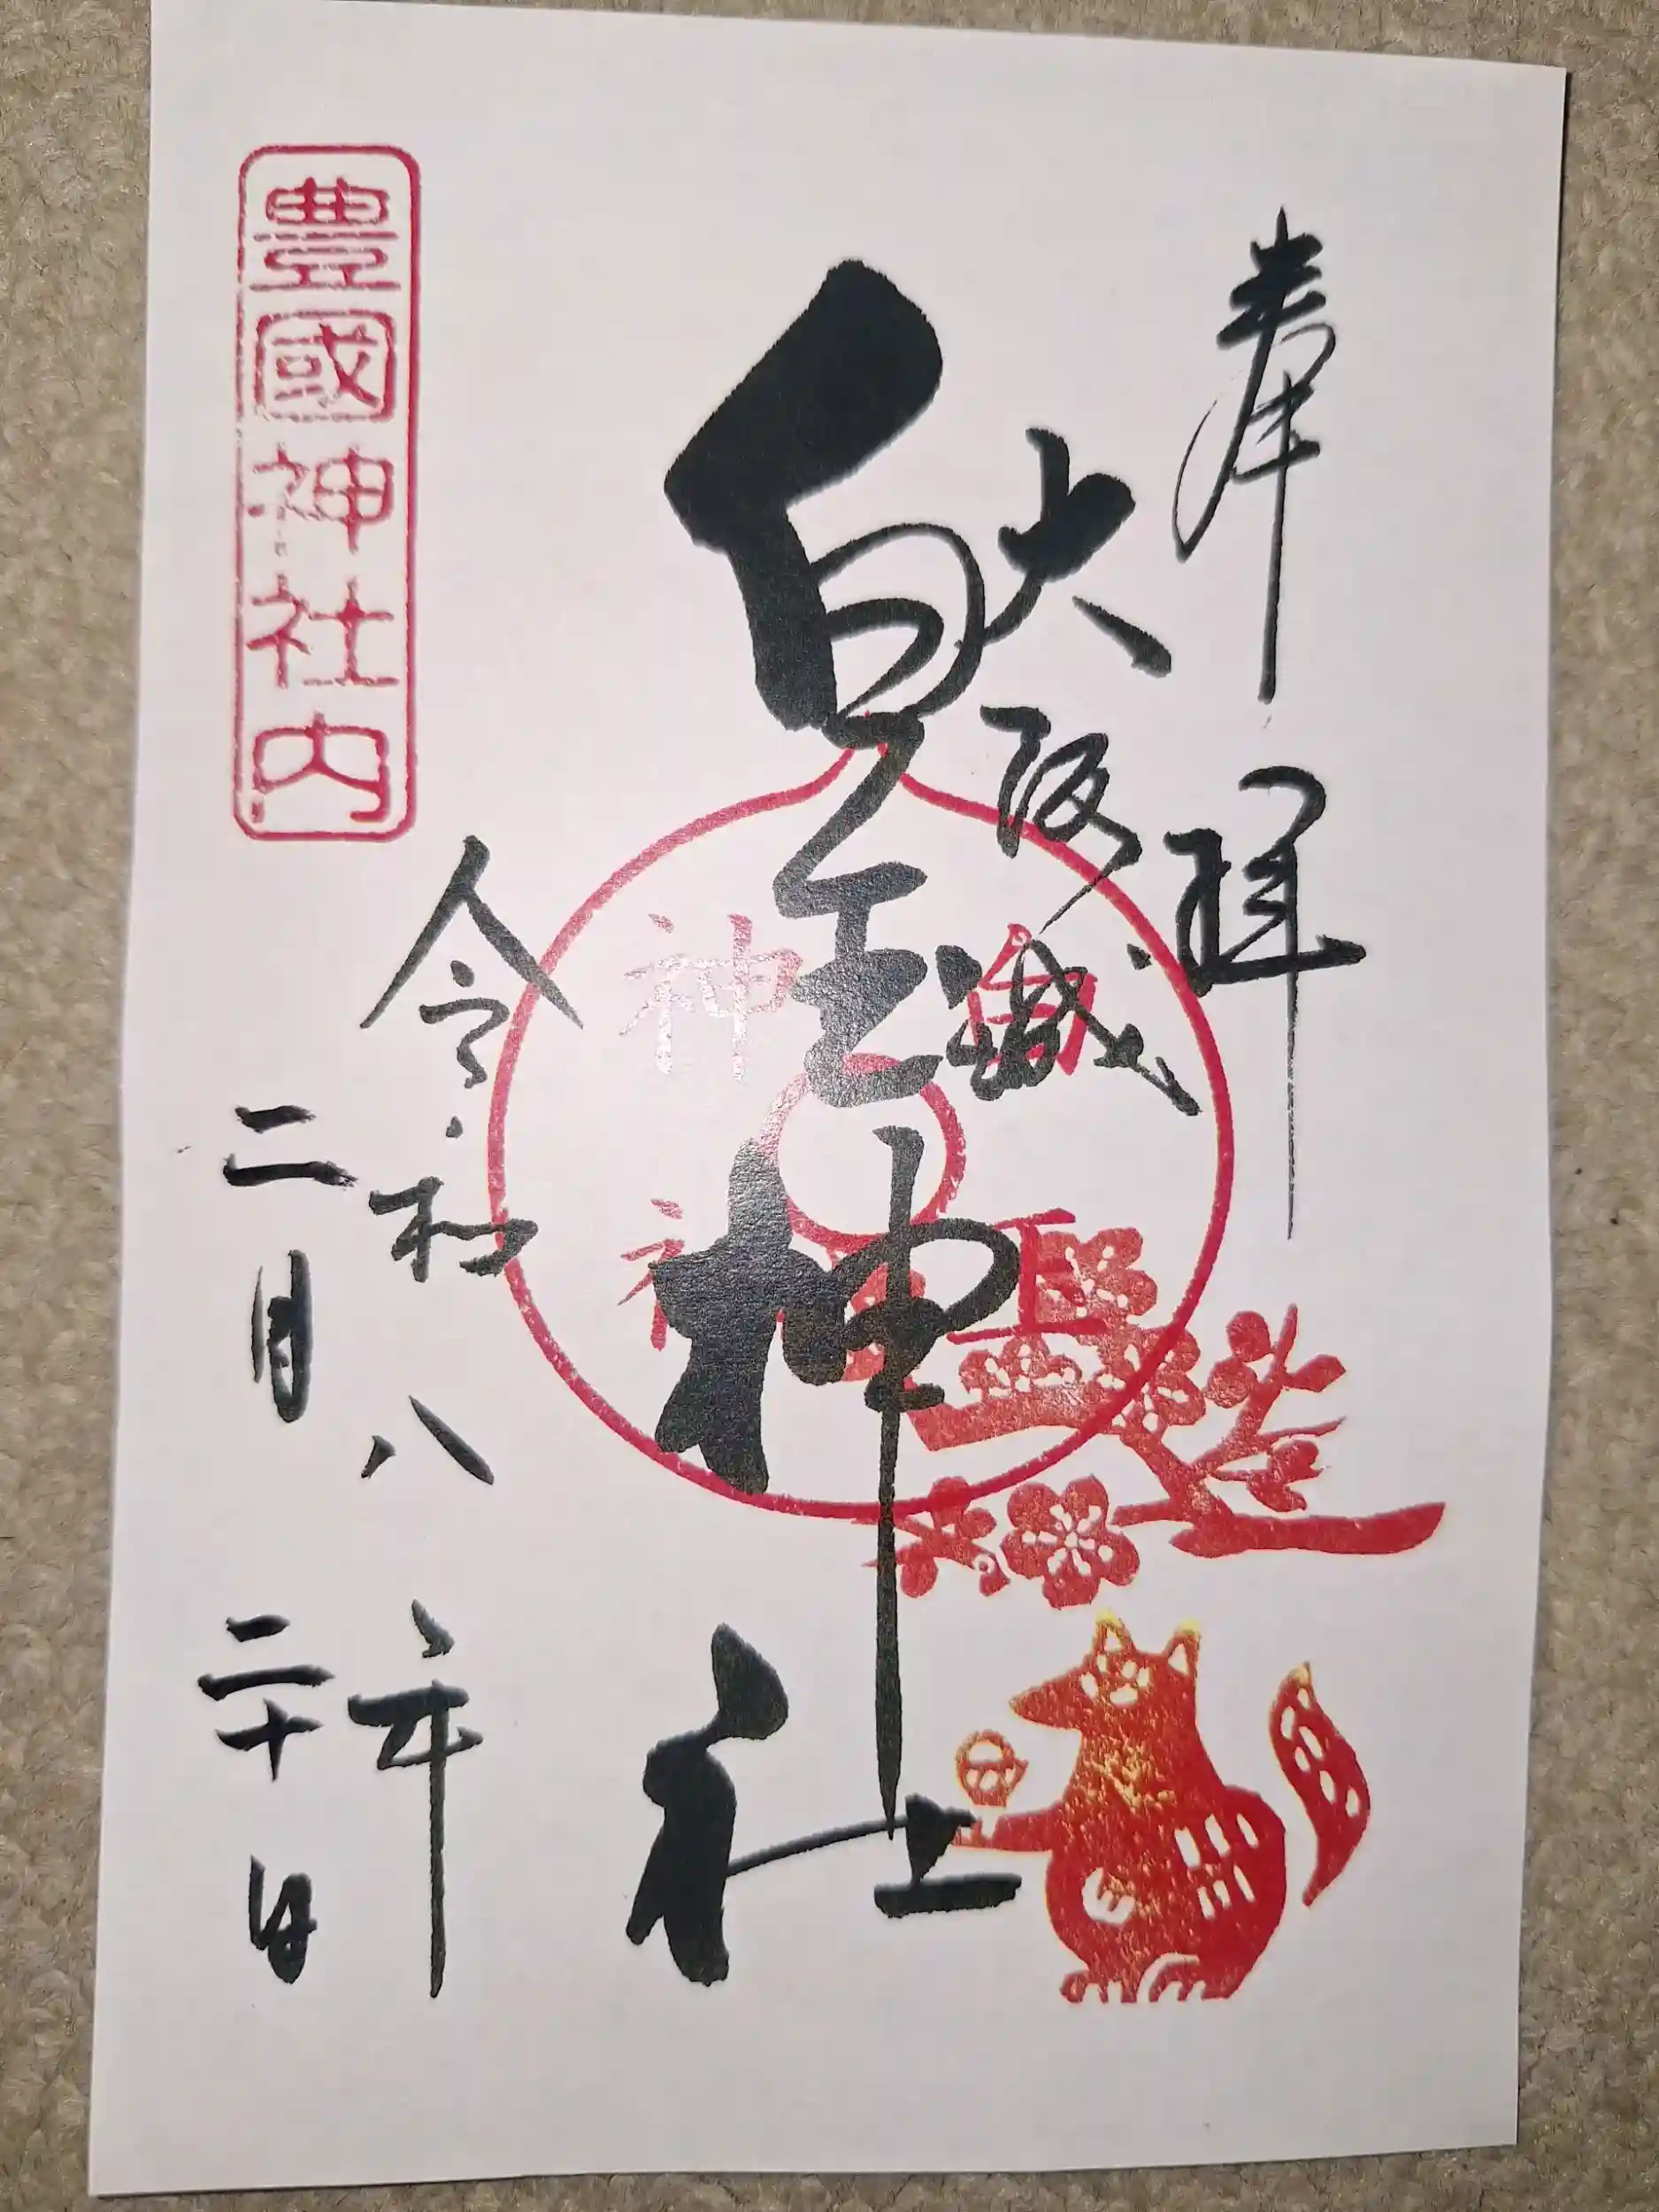 奉拝
大阪城
白玉神社
白玉
神社
令和八年
二月二十日
豊國神社内